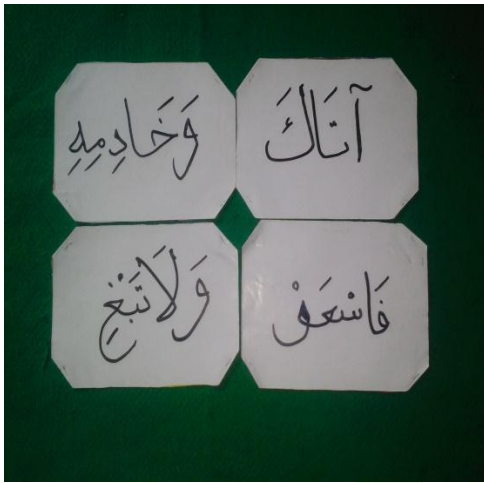 آتَاكَ
وَخَادِمِهِ
فَاسْعَوْ
وَلَا تَبْغِ